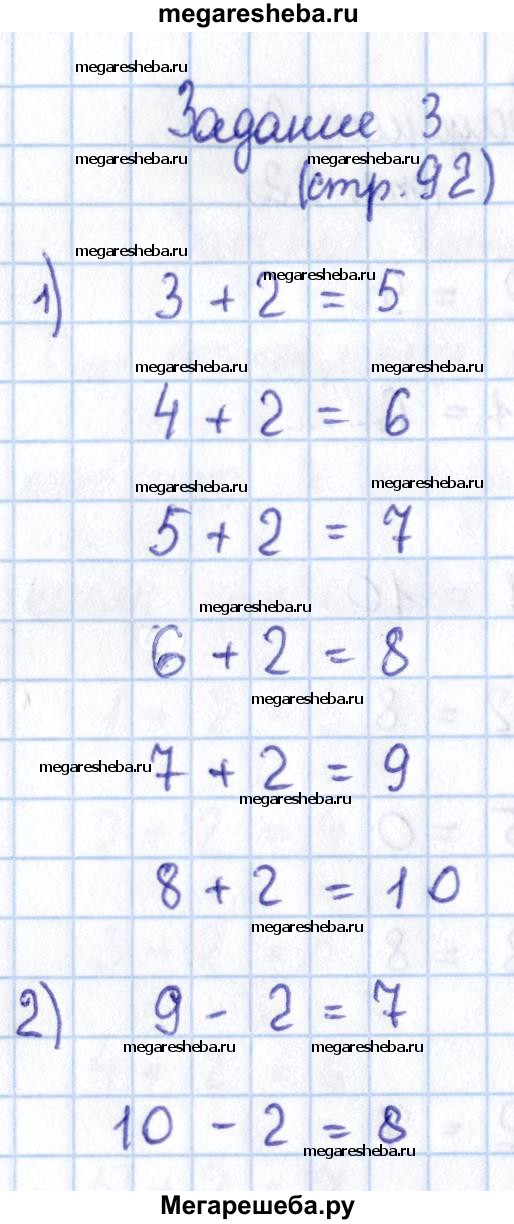 megaresheba.ru
megaresheba.ru
Задание 3
megaresheba.ru megaresheba.ru
(стр. 92)
megaresheba.ru
megaresheba.ru
1) 3 + 2 = 5
megaresheba.ru megaresheba.ru
4 + 2 = 6
megaresheba.ru megaresheba.ru
5 + 2 = 7
megaresheba.ru
6 + 2 = 8
megaresheba.ru
megaresheba.ru
7 + 2 = 9
megaresheba.ru
8 + 2 = 10
megaresheba.ru
2) 9 - 2 = 7
megaresheba.ru megaresheba.ru
10 - 2 = 8
megaresheba.ru
Мегарешеба.ру